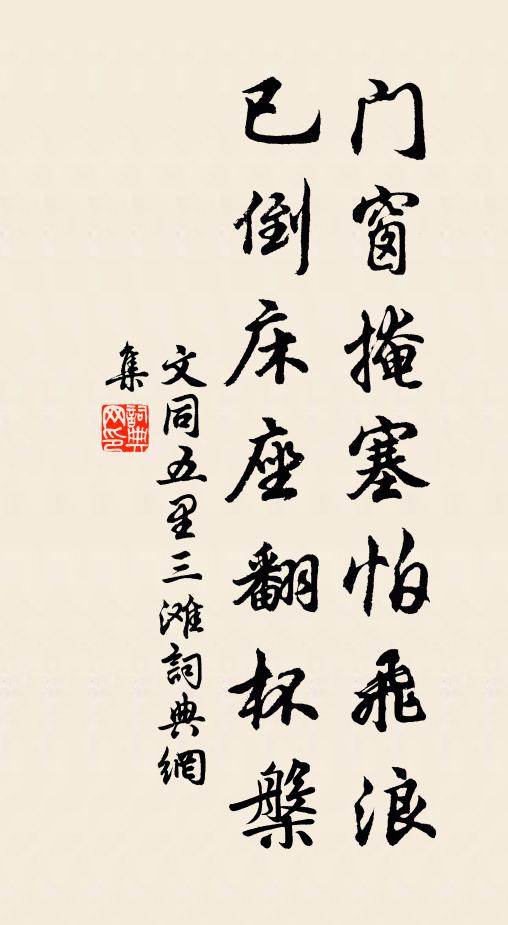 门窗掩塞怕飛浪
已倒床座翻杯槃
文同五里三滩詞典網
集
詞典
网印